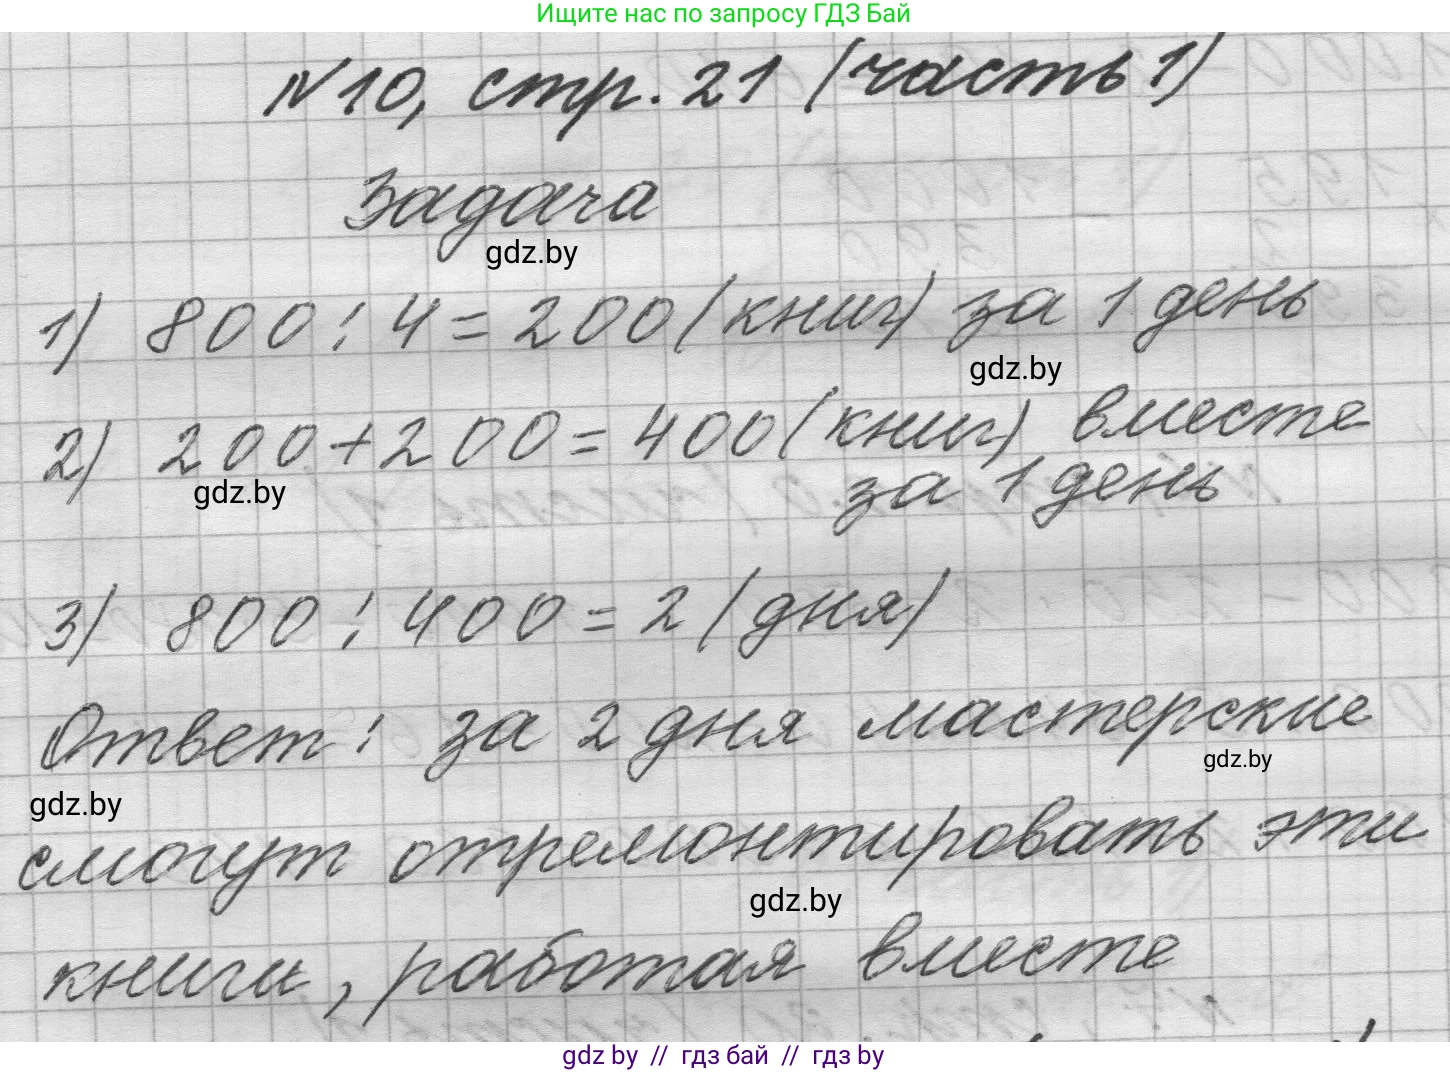 Ищите нас по запросу ГДЗ Бай
№10, стр. 21 (часть 1)
Задача
gdz.by
1) 800 : 4 = 200 (книг) за 1 день
gdz.by
2) 200 + 200 = 400 (книг) вместе
за 1 день
gdz.by
3) 800 : 400 = 2 (дня)
Ответ: за 2 дня мастерские
gdz.by
gdz.by
смогут отремонтировать эти
gdz.by
книги, работая вместе
gdz by // гдз бай // гдз by